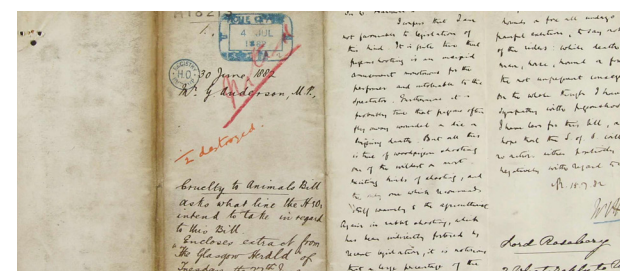 A18213
1.
4 JUL
REGISTRY
H O
30 June, 1882
Mr. G Anderson, M.P.,
I destroyed.
Cruelty to Animals Bill
asks what line the H.O.
intend to take in regard
to this Bill
Encloses extract from
"The Glasgow Herald" of
Tuesday
I confess that I am
not favourable to legislation of
this kind. It is quite true that
pigeon shooting is an insipid
amusement monotonous for the
performer and intolerable to the
spectator. Furthermore it is
probably true that pigeons often
fly away wounded & die a
lingering death. But all this
is true of woodpigeon shooting
one of the wildest & most
exciting kinds of shooting, and
the only one which recommends
itself warmly to the agriculturist
Again in rabbit shooting, which
has been indirectly fostered by
recent legislation, it is notorious
that a large percentage of the
wounds a fire all undergo
painful
of the
On the whole though I have
sympathy with pigeon shooting
I have less for this bill, &
hope that the S. of S. will
either
negatively with regard to
AR. 15.7.82
Lord Rosebery